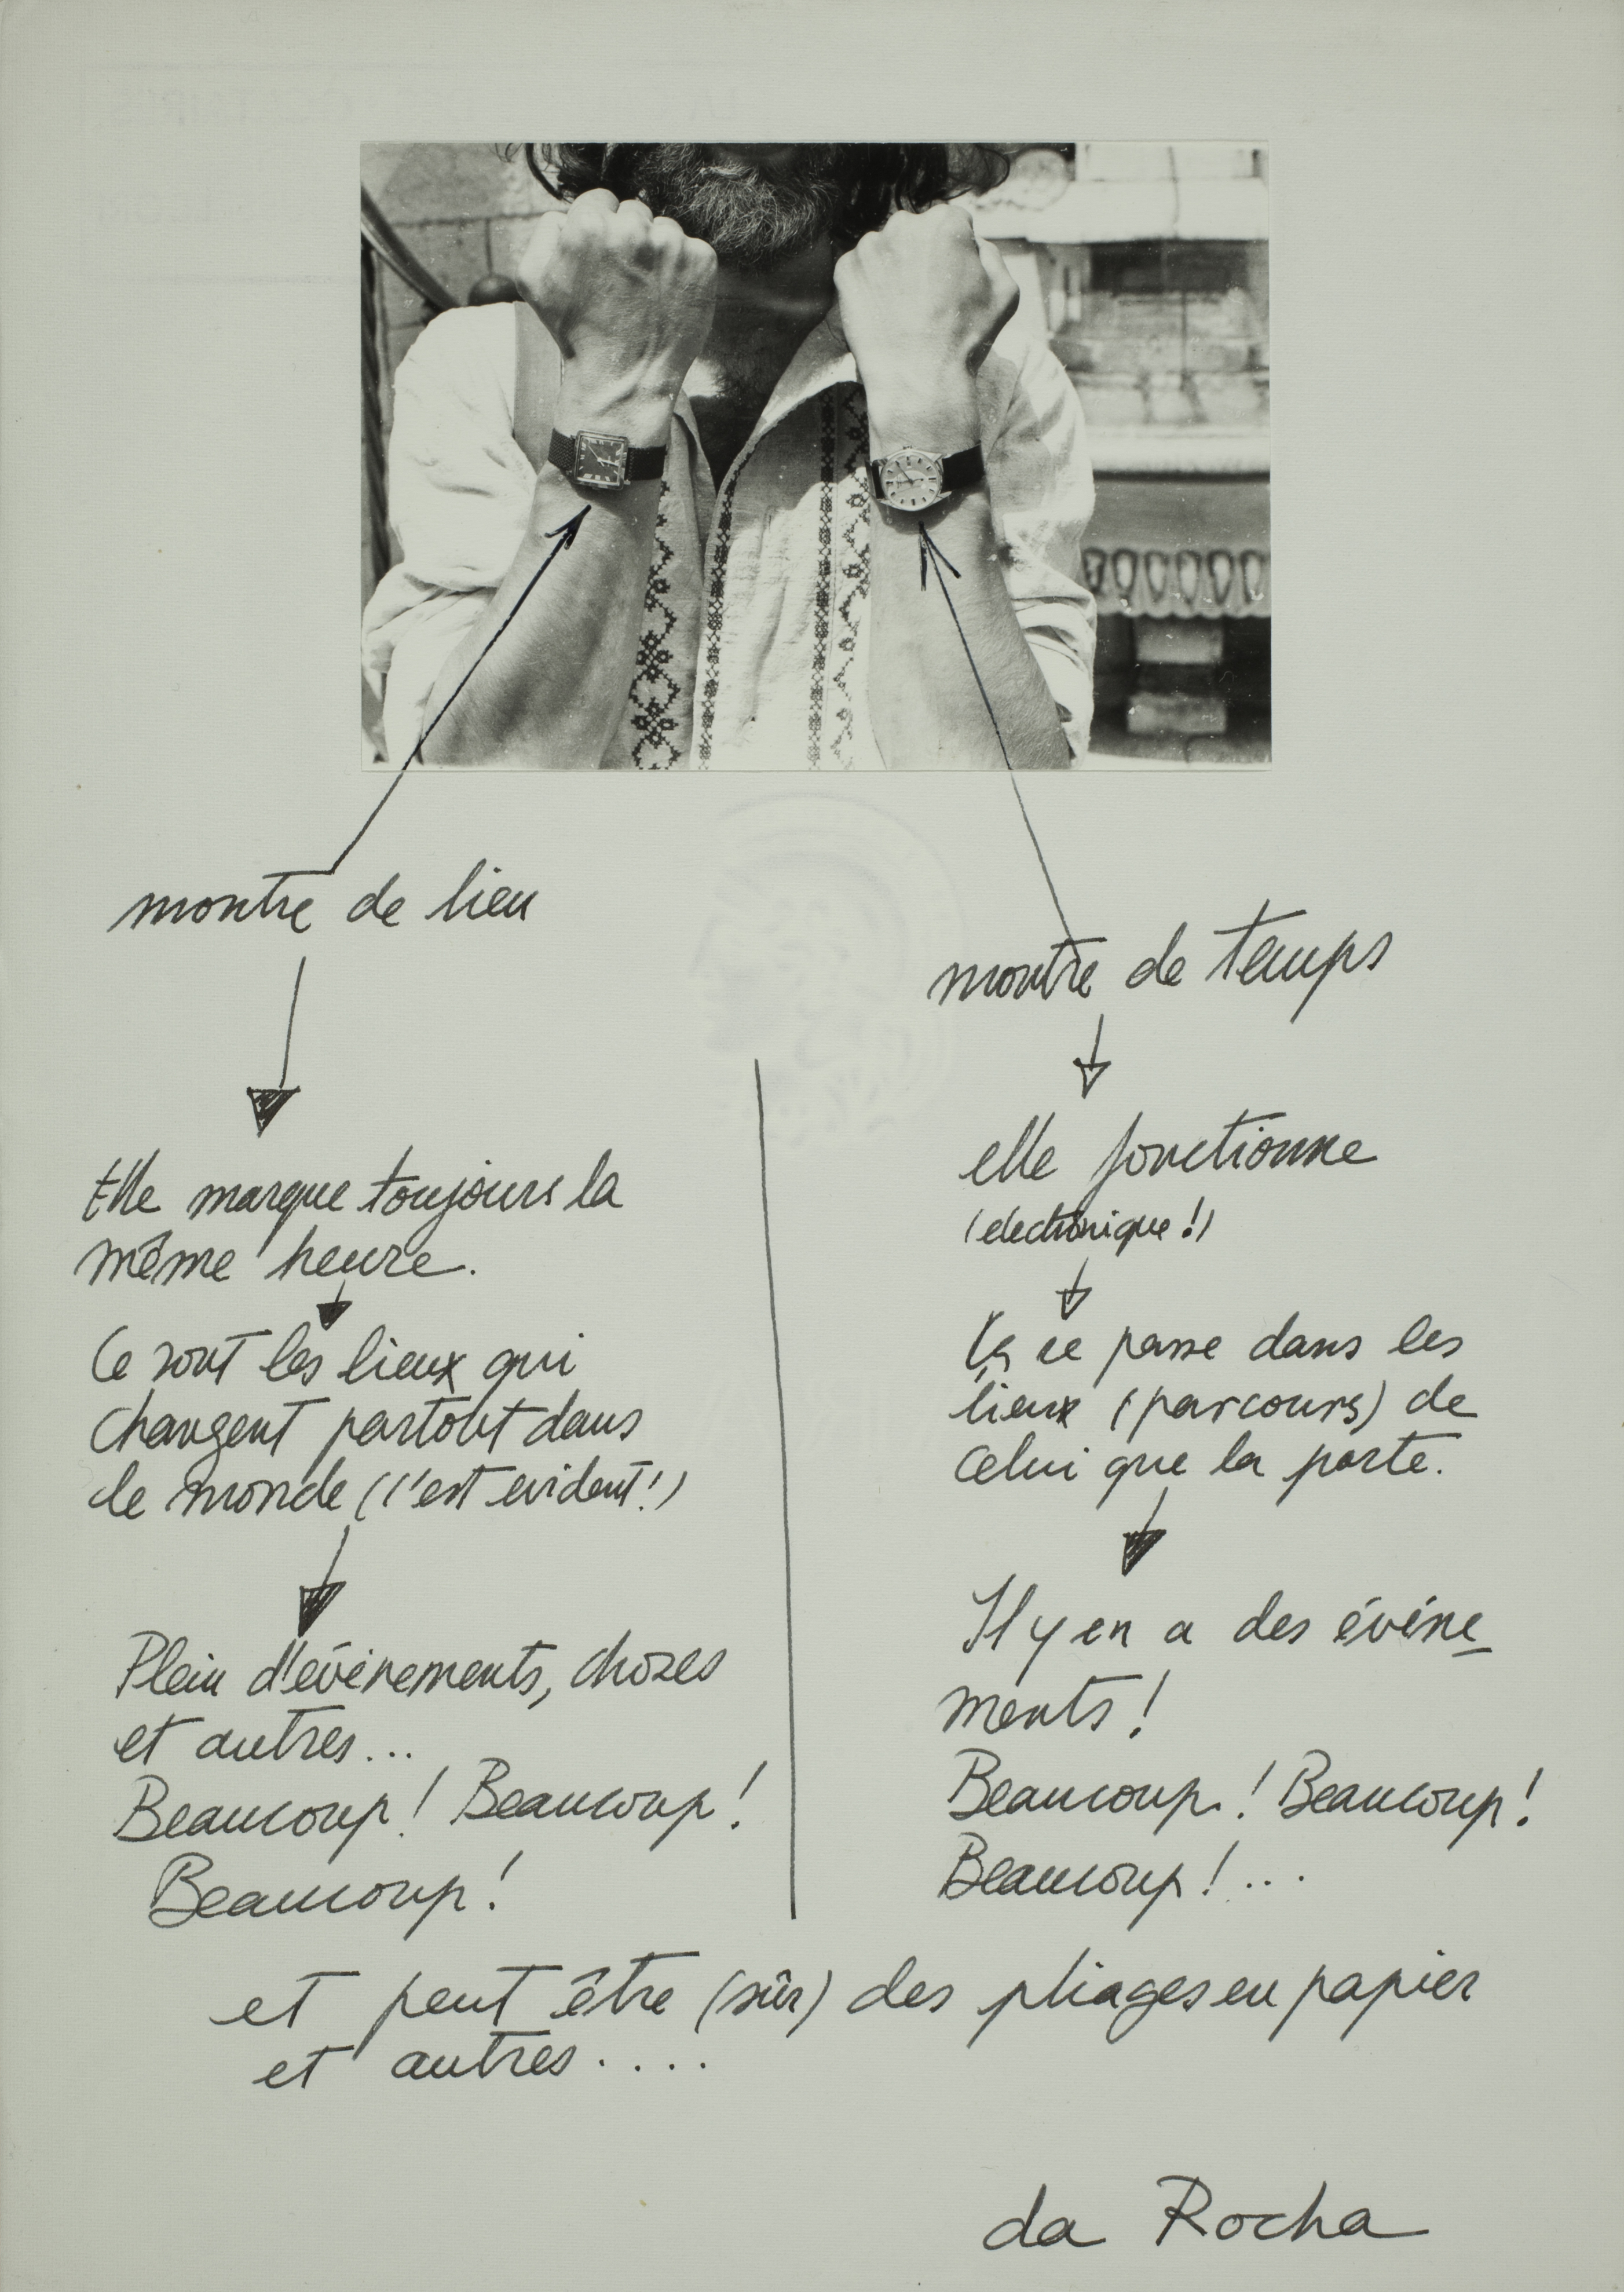 montre de lieu
Elle marque toujours la
même heure.
Ce sont les lieux qui
changent partout dans
le monde (c'est evident!)
Plein d'événements, chozes
et autres...
Beaucoup! Beaucoup!
Beaucoup!
montre de temps
elle fonctionne
(electronique!)
Ça se passe dans les
lieux (parcours) de
celui que la porte.
Il y en a des événe-
ments!
Beaucoup! Beaucoup!
Beaucoup!...
et peut être (sûr) des pliages en papier
et autres....
da Rocha